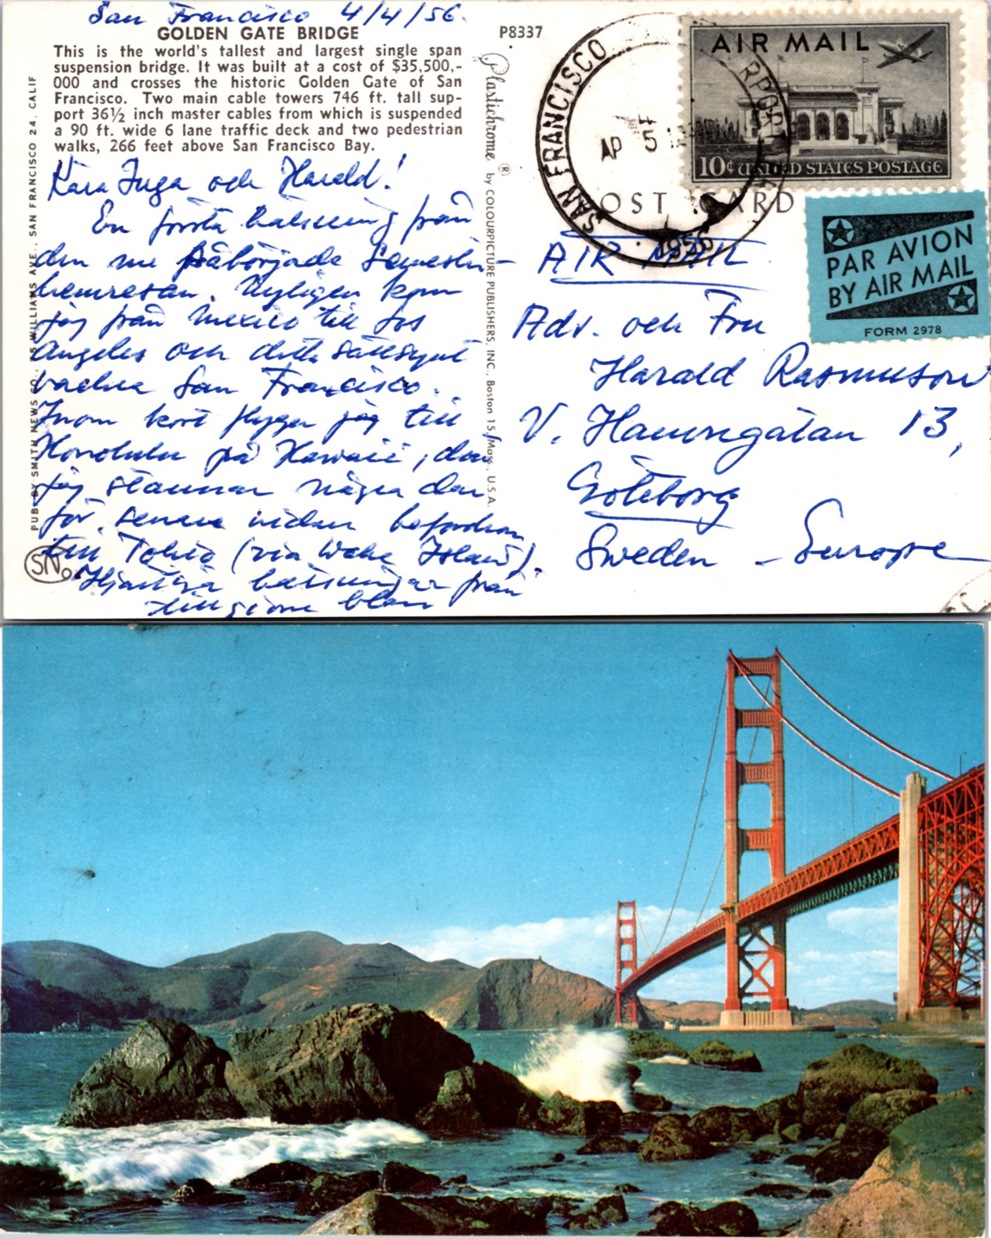 San Francisco 4/4/56.
GOLDEN GATE BRIDGE
This is the world's tallest and largest single span
suspension bridge. It was built at a cost of $35,500,-
000 and crosses the historic Golden Gate of San
Francisco. Two main cable towers 746 ft. tall sup-
port 36½ inch master cables from which is suspended
a 90 ft. wide 6 lane traffic deck and two pedestrian
walks, 266 feet above San Francisco Bay.
Kära Inga och Harald!
En första hälsning från
den nu påbörjade
hemresan. Nyligen kom
jag från Mexico till Los
Angeles och detta sällsynt
vackra San Francisco.
Inom kort flyger jag till
Honolulu på Hawaii, där
jag stannar några dar
för senare vidare befordran
till Tokio (via Wake Island).
Hjärtliga hälsningar från
PUB. BY SMITH NEWS CO., WILLIAMS AVE., SAN FRANCISCO 24, CALIF
SN
P8337
Plastichrome ® by COLOURPICTURE PUBLISHERS, INC., Boston 15, Mass., U.S.A.
SAN FRANCISCO
AP 5
1956
POST CARD
AIR MAIL
10¢ UNITED STATES POSTAGE
PAR AVION
BY AIR MAIL
FORM 2978
AIR MAIL
Adv. och Fru
Harald Rasmuson
V. Hamngatan 13,
Göteborg
Sweden - Europe